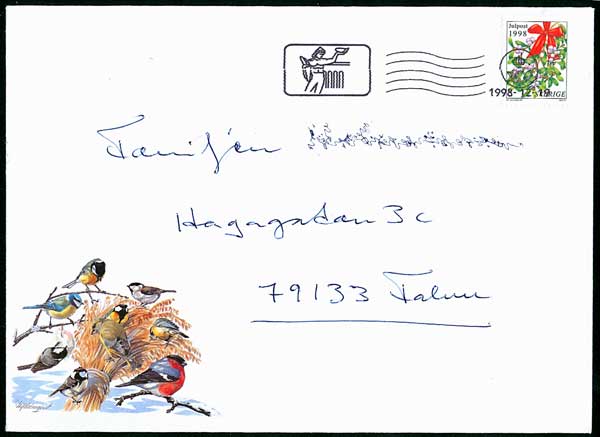 Julpost
1998
1998-12-19
SVERIGE
Familjen
Hagagatan 3c
79133 Falun